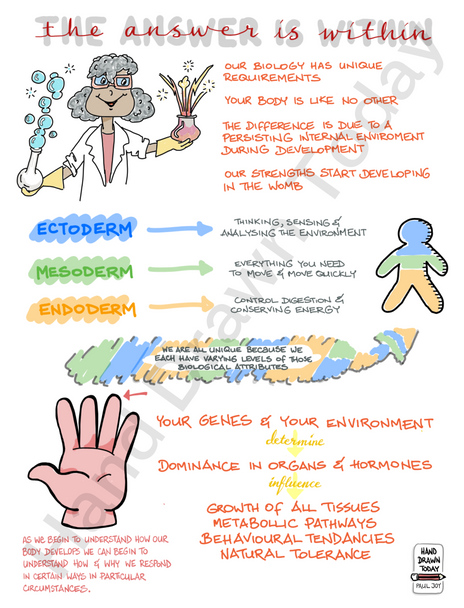 the answer is within
OUR BIOLOGY HAS UNIQUE
REQUIREMENTS
YOUR BODY IS LIKE NO OTHER
THE DIFFERENCE IS DUE TO A
PERSISTING INTERNAL ENVIROMENT
DURING DEVELOPMENT
OUR STRENGTHS START DEVELOPING
IN THE WOMB
ECTODERM
THINKING, SENSING &
ANALYSING THE ENVIRONMENT
MESODERM
EVERYTHING YOU NEED
TO MOVE & MOVE QUICKLY
ENDODERM
CONTROL DIGESTION &
CONSERVING ENERGY
WE ARE ALL UNIQUE BECAUSE WE
EACH HAVE VARYING LEVELS OF THOSE
BIOLOGICAL ATTRIBUTES
YOUR GENES & YOUR ENVIRONMENT
determine
DOMINANCE IN ORGANS & HORMONES
influence
GROWTH OF ALL TISSUES
METABOLLIC PATHWAYS
BEHAVIOURAL TENDANCIES
NATURAL TOLERANCE
AS WE BEGIN TO UNDERSTAND HOW OUR
BODY DEVELOPS WE CAN BEGIN TO
UNDERSTAND HOW & WHY WE RESPOND
IN CERTAIN WAYS IN PARTICULAR
CIRCUMSTANCES.
HAND
DRAWN
TODAY
PAUL JOY
Hand Drawn Today